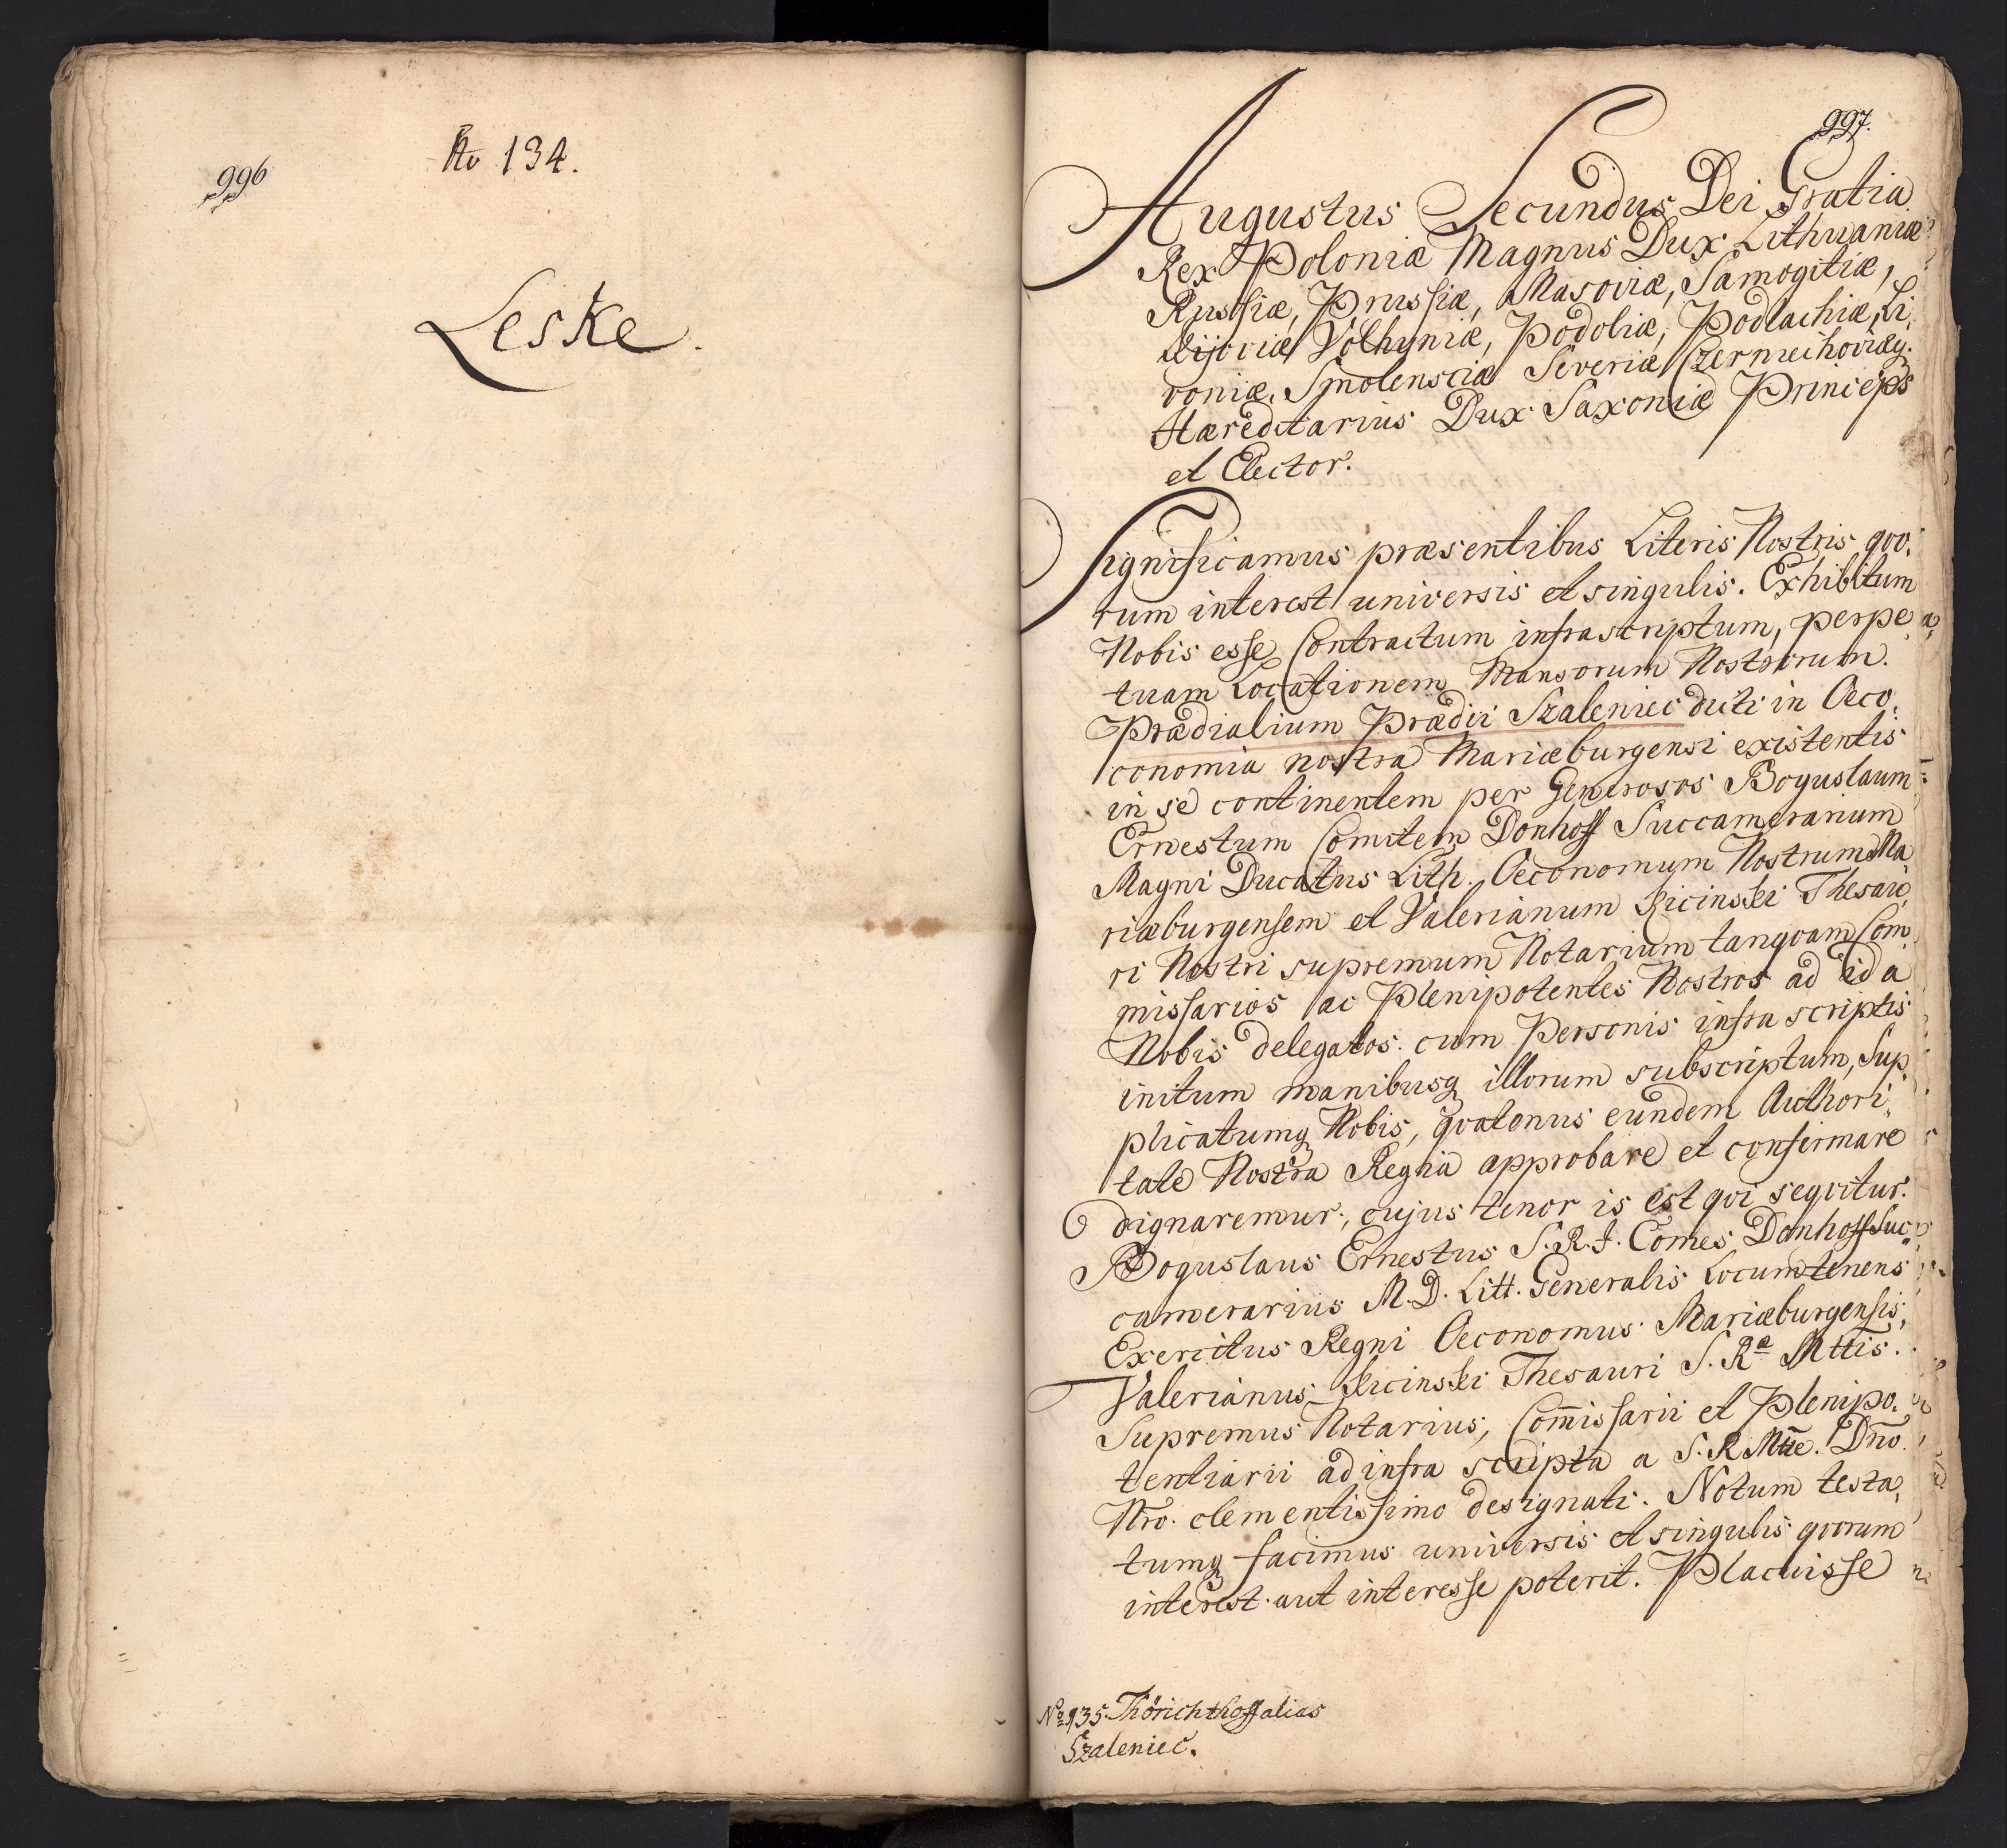 996
No 134.
Leske.
997.
Augustus Secundus Dei Gratia
Rex Poloniæ Magnus Dux Lithuaniæ
Russiæ, Prussiæ, Masoviæ, Samogitiæ,
Kijoviæ Volhyniæ, Podoliæ, Podlachiæ, Li,
voniæ, Smolensciæ Severiæ Czerniechoviæq.
Hæreditarius Dux Saxoniæ Princeps
et Elector.
Significamus præsentibus Literis Nostris qvo,
rum interest universis et singulis. Exhibitum
Nobis esse Contractum infrascriptum, perpe,
tuam Locationem Mansorum Nostrorum
Prædialium Prædii Szaleniec dicti in Oeco,
conomia nostra Mariæburgensi existentis
in se continentem per Generosos Boguslaum
Ernestum Comitem Donhoff Succamerarium
Magni Ducatus Lith. Oeconomum Nostrum Ma
riæburgensem et Valerianum Kicinski Thesau,
ri Nostri supremum Notarium tanqvam Com
missarios ac Plenipotentes Nostros ad id a
Nobis delegatos cum Personis infra scriptis
initum manibusq illorum subscriptum, Sup,
plicatumq Nobis, qvatenus eundem Authori,
tate Nostra Regia approbare et confirmare
dignaremur, cujus tenor is est qvi seqvitur.
Boguslaus Ernestus S. R. I. Comes Donhoff Suc,
camerarius M. D. Litt. Generalis Locumtenens
Exercitus Regni Oeconomus Mariæburgensis,
Valerianus Kicinski Thesauri S. Rª Mttis.
Supremus Notarius, Com̄issarii et Plenipo,
tentiarii ad infra scripta a S. R Mtte. Dn̄o
Nro. clementissimo designati. Notum testa,
tumq facimus universis et singulis qvorum
interest aut interesse poterit. Placuisse
No 135. Thörichthoff alias
Szaleniec.